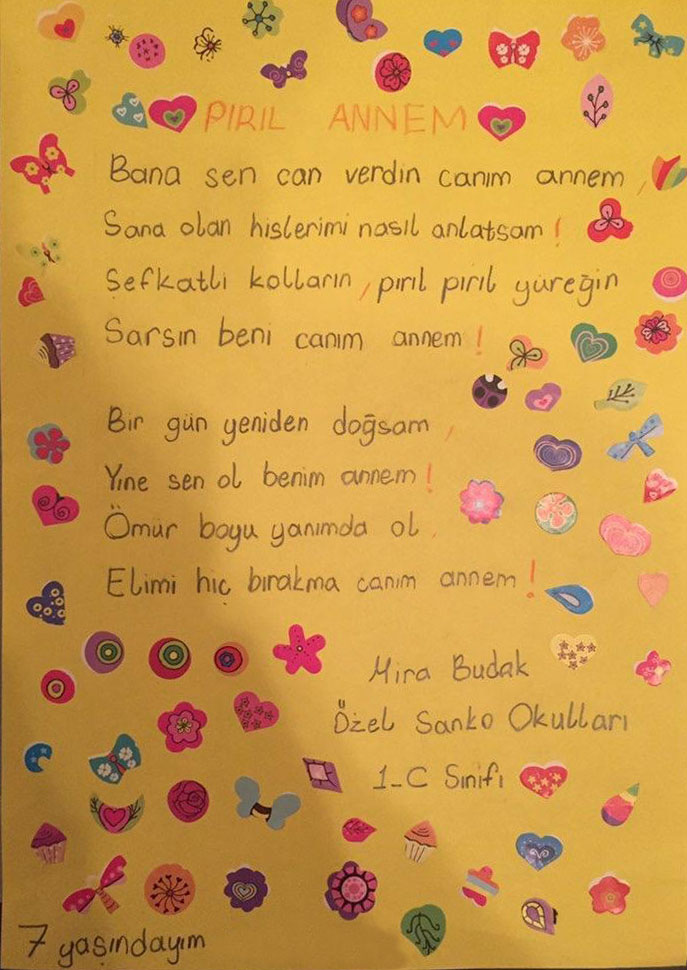 PIRIL ANNEM
Bana sen can verdin canım annem,
Sana olan hislerimi nasıl anlatsam!
Şefkatli kolların, pırıl pırıl yüreğin
Sarsın beni canım annem!
Bir gün yeniden doğsam,
Yine sen ol benim annem!
Ömür boyu yanımda ol.
Elimi hiç bırakma canım annem!
Mira Budak
Özel Sanko Okulları
1-C Sınıfı
7 yaşındayım